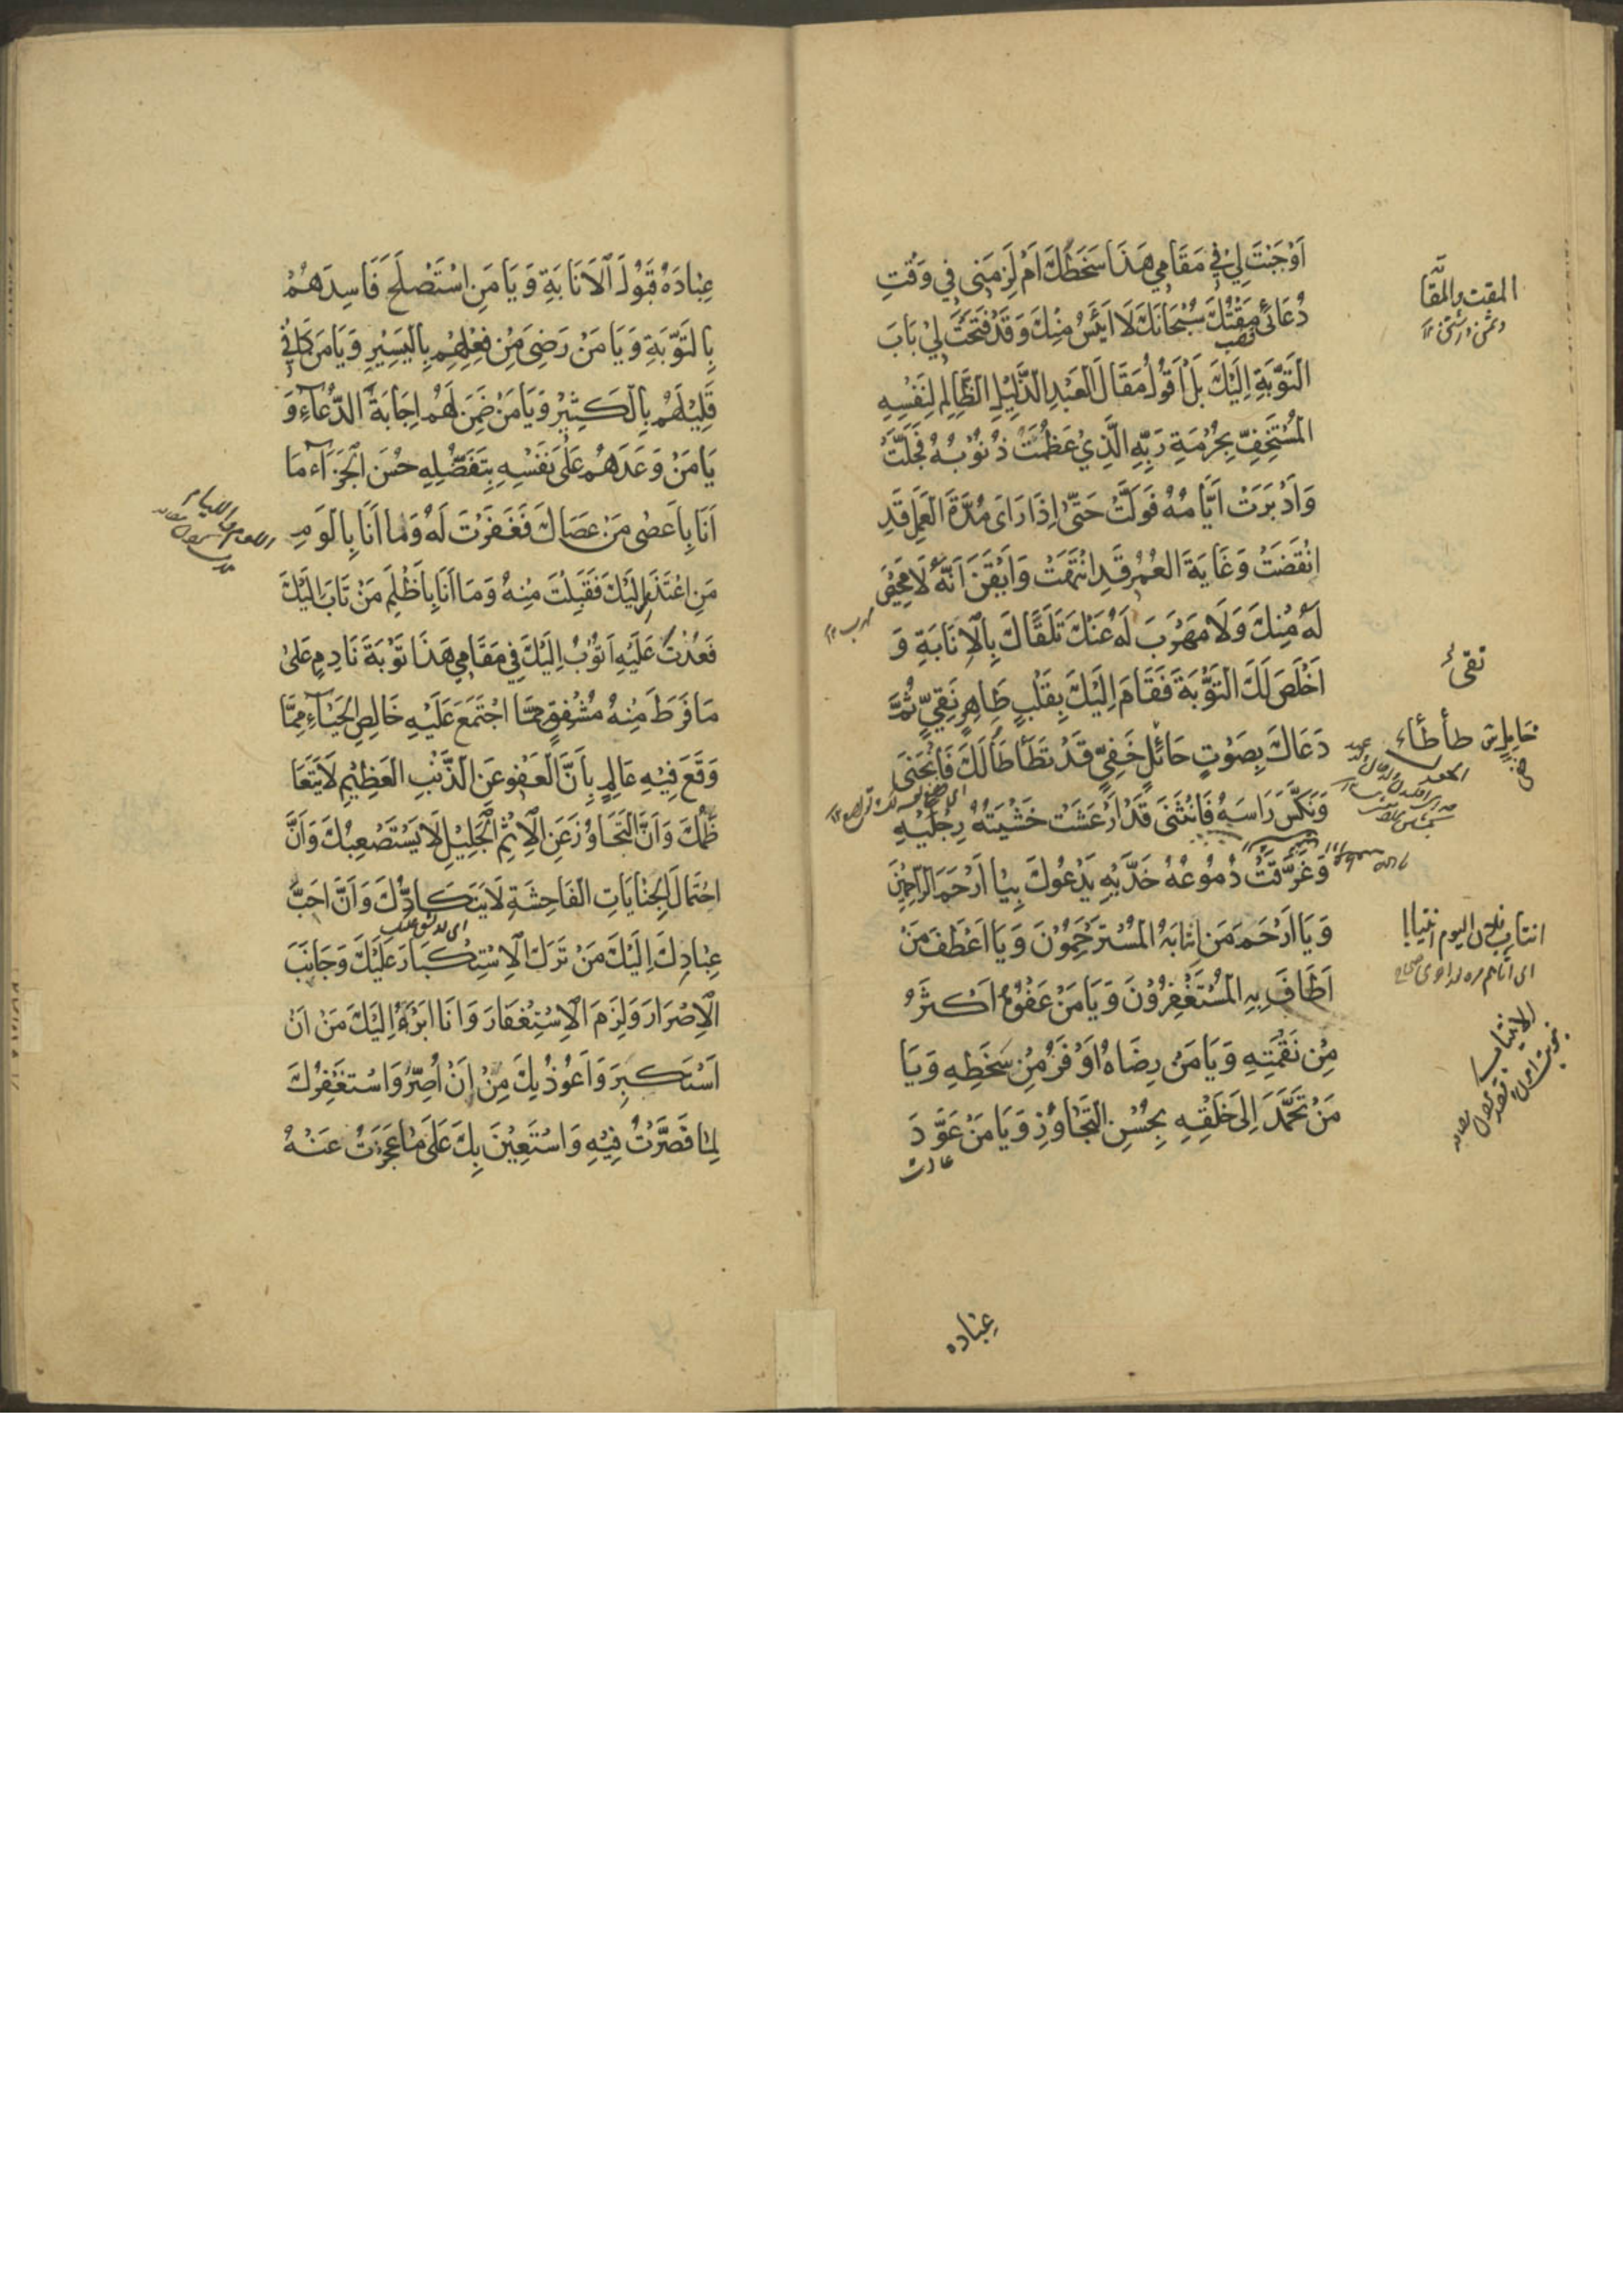 اَوْجَبْتَ لِيْ فِي مَقَامِي هَذَا سَخَطَكَ اَمْ لَزِمَنِي فِي وَقْتِ
دُعَائِي مَقْتُكَ سُبْحَانَكَ لَا اَيْئَسُ مِنْكَ وَقَدْ فَتَحْتَ لِيْ بَابَ
غضب
التَّوْبَةِ اِلَيْكَ بَلْ اَقُولُ مَقَالَ العَبْدِ الذَّلِيْلِ الظَّالِمِ لِنَفْسِهِ
المُسْتَخِفِّ بِحُرْمَةِ رَبِّهِ الَّذِيْ عَظُمَتْ ذُنُوْبُهُ فَجَلَّتْ
وَاَدْبَرَتْ اَيَّامُهُ فَوَلَّتْ حَتّٰى اِذَا رَاَى مُدَّةَ العَمَلِ قَدِ
انْقَضَتْ وَغَايَةَ العُمُرِ قَدِ انْتَهَتْ وَاَيْقَنَ اَنَّهُ لَا مَحِيْصَ
لَهُ مِنْكَ وَلَا مَهْرَبَ لَهُ عَنْكَ تَلَقَّاكَ بِالْاِنَابَةِ وَ
اَخْلَصَ لَكَ التَّوْبَةَ فَقَامَ اِلَيْكَ بِقَلْبٍ طَاهِرٍ نَقِيٍّ ثُمَّ
دَعَاكَ بِصَوْتٍ حَائِلٍ خَفِيٍّ قَدْ تَطَأْطَأَ لَكَ فَانْحَنَى
وَنَكَّسَ رَاسَهُ فَانْثَنَى قَدْ اَرْعَشَتْ خَشْيَتُهُ رِجْلَيْهِ
وَغَرَّقَتْ دُمُوْعُهُ خَدَّيْهِ يَدْعُوكَ بِيَا اَرْحَمَ الرَّاحِمِيْنَ
وَيَا اَرْحَمَ مَنِ انْتَابَهُ المُسْتَرْحِمُوْنَ وَيَا اَعْطَفَ مَنْ
اَطَافَ بِهِ المُسْتَغْفِرُوْنَ وَيَا مَنْ عَفْوُهُ اَكْثَرُ
مِنْ نَقْمَتِهِ وَيَا مَنْ رِضَاهُ اَوْفَرُ مِنْ سَخَطِهِ وَيَا
مَنْ تَحَمَّدَ اِلَى خَلْقِهِ بِحُسْنِ التَّجَاوُزِ وَيَا مَنْ عَوَّدَ
عادت
عباده
المقت والمقا
نقى
انتاب فلان اليوم انتيابا
الانتياب
عِبَادَهُ قَبُوْلَ الْاَنَابَةِ وَيَا مَنِ اسْتَصْلَحَ فَاسِدَهُمْ
بِالتَّوْبَةِ وَيَا مَنْ رَضِىَ مِنْ فِعْلِهِمْ بِالْيَسِيْرِ وَيَا مَنْ كَافٰى
قَلِيْلَهُمْ بِالْكَثِيْرِ وَيَا مَنْ ضَمِنَ لَهُمْ اِجَابَةَ الدُّعَاۤءِ وَ
يَا مَنْ وَعَدَهُمْ عَلَى نَفْسِهِ بِتَفَضُّلِهِ حُسْنَ الْجَزَاۤءِ مَا
اَنَا بِاَعْصٰى مَنْ عَصَاكَ فَغَفَرْتَ لَهُ وَمَا اَنَا بِاَلْوَمِ
مَنِ اعْتَذَرَ اِلَيْكَ فَقَبِلْتَ مِنْهُ وَمَا اَنَا بِاَظْلَمِ مَنْ تَابَ اِلَيْكَ
فَعُدْتَ عَلَيْهِ اَتُوْبُ اِلَيْكَ فِي مَقَامِي هَذَا تَوْبَةَ نَادِمٍ عَلَىٰ
مَا فَرَطَ مِنْهُ مُشْفِقٍ مِمَّا اجْتَمَعَ عَلَيْهِ خَالِصِ الْحَيَاۤءِ مِمَّا
وَقَعَ فِيْهِ عَالِمٍ بِاَنَّ الْعَفْوَ عَنِ الذَّنْبِ العَظِيْمِ لَا يَتَعَا
ظَمُكَ وَاَنَّ التَّجَاوُزَ عَنِ الْاِثْمِ الْجَلِيْلِ لَا يَسْتَصْعِبُكَ وَاَنَّ
احْتِمَالَ الْجِنَايَاتِ الفَاحِشَةِ لَا يَتَكَادُّكَ وَاَنَّ اَحَبَّ
عِبَادِكَ اِلَيْكَ مَنْ تَرَكَ الْاِسْتِكْبَارَ عَلَيْكَ وَجَانَبَ
الْاِصْرَارَ وَلَزِمَ الْاِسْتِغْفَارَ وَاَنَا اَبْرَءُ اِلَيْكَ مِنْ اَنْ
اَسْتَكْبِرَ وَاَعُوْذُ بِكَ مِنْ اَنْ اُصِرَّ وَاَسْتَغْفِرُكَ
لِمَا قَصَّرْتُ فِيْهِ وَاَسْتَعِيْنَ بِكَ عَلَى مَا عَجَزْتُ عَنْهُ